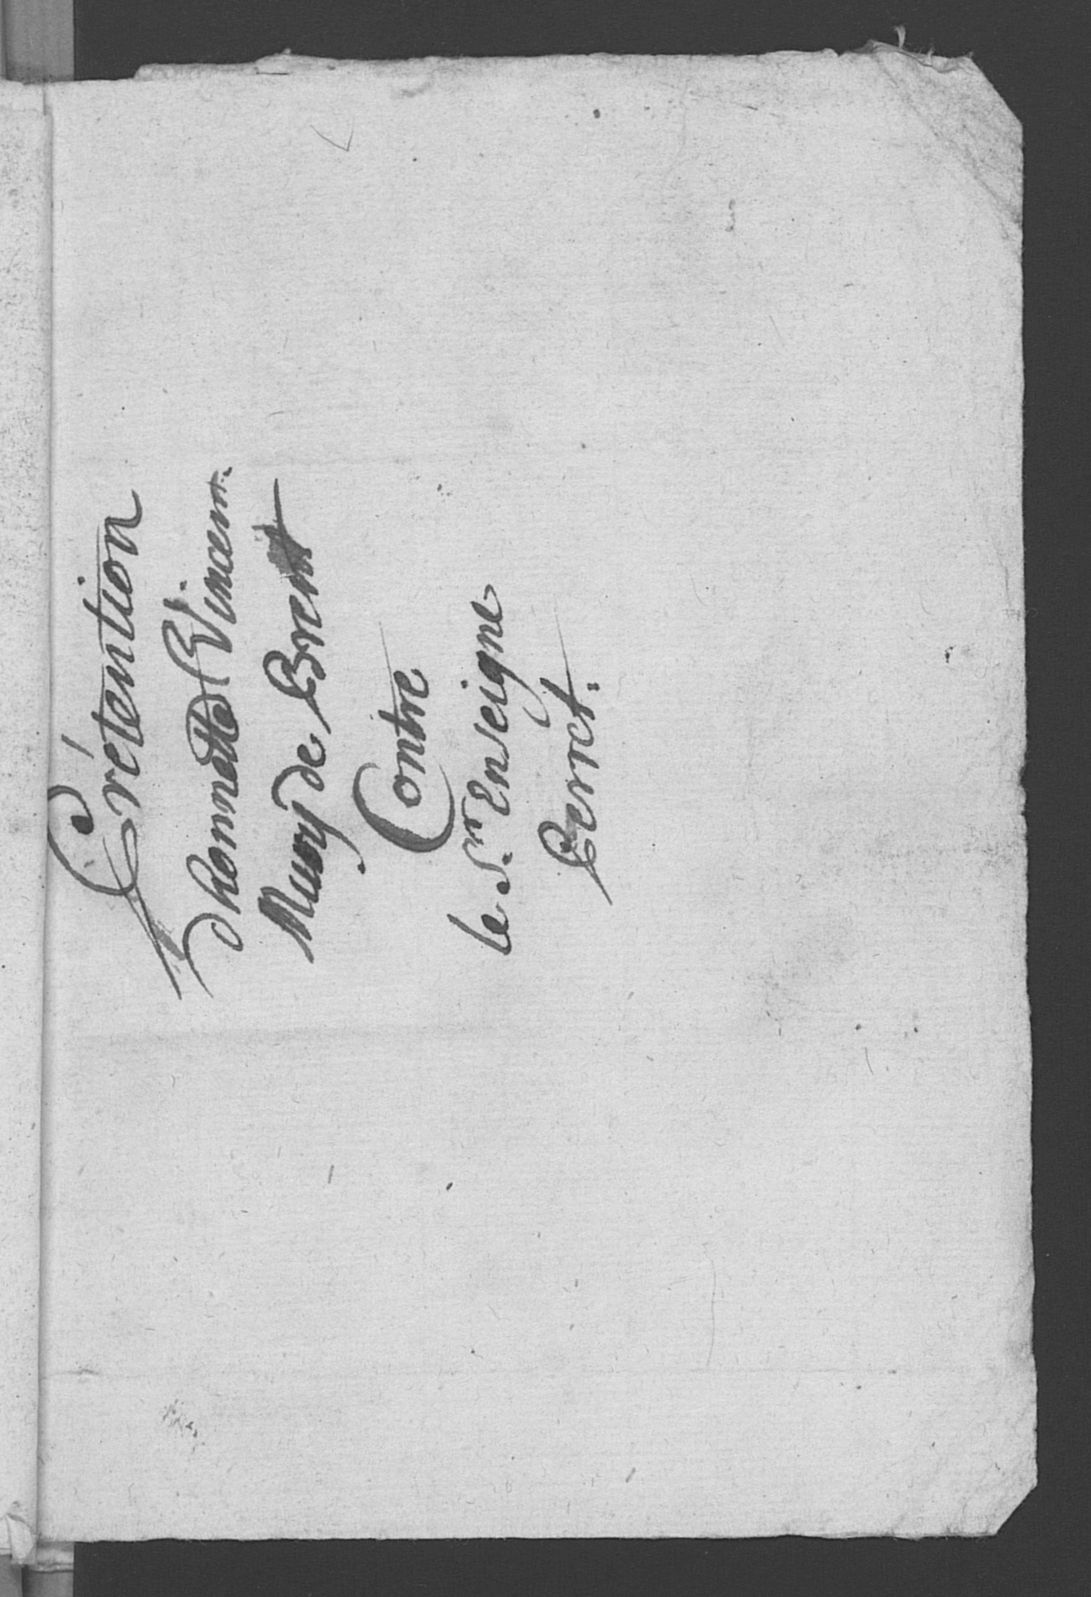 Prétention
dhonnette Vincent
Muvy de Brent
Contre
le Sr. Enseigne
Perret.